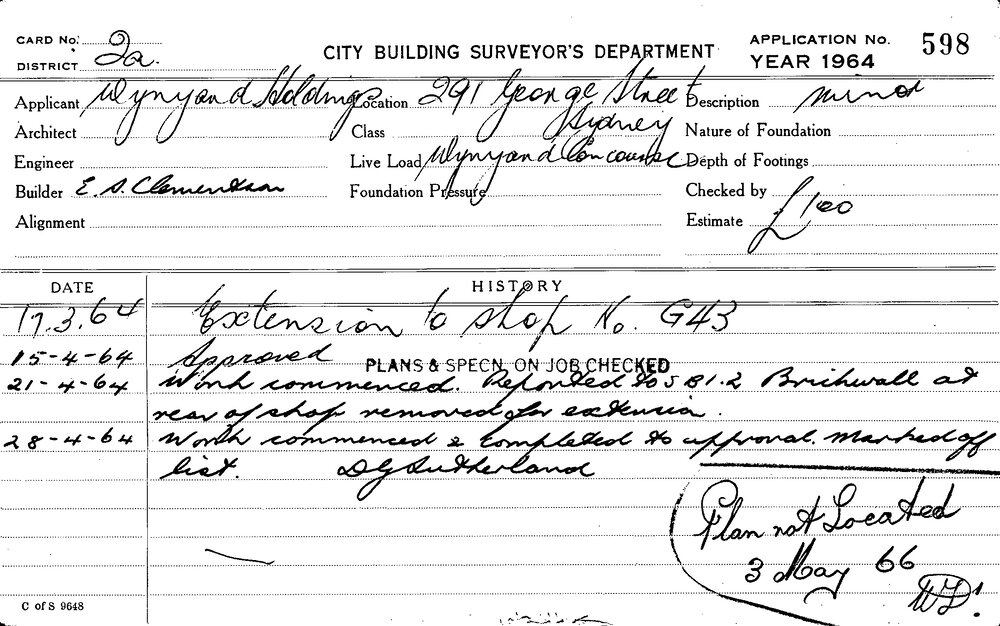 CARD No. 2a.
DISTRICT
CITY BUILDING SURVEYOR'S DEPARTMENT
APPLICATION No. 598
YEAR 1964
Applicant Wynyard Holdings Location 291 George Street Description minor
Architect Class Sydney Nature of Foundation
Engineer Live Load Wynyard Concourse Depth of Footings
Builder E. S. Clementson Foundation Pressure Checked by
Alignment Estimate £100
DATE HISTORY
17.3.64 Extension to shop No. G43
15-4-64 Approved PLANS & SPECN. ON JOB CHECKED
21-4-64 Work commenced. Reported to S B1.2 Brickwall at
rear of shop removed for extension.
28-4-64 Work commenced & completed to approval. Marked off
list. DG Sutherland
Plan not Located
3 May 66
C of S 9648